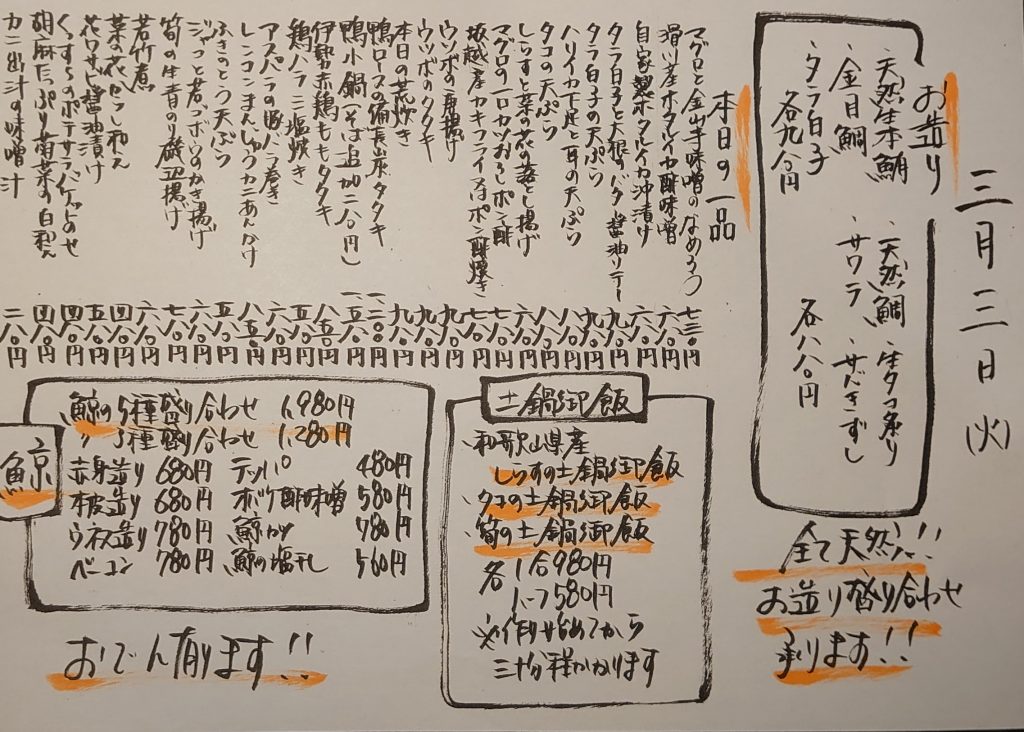 三月三日(火)
お造り
、天然生本鮪
、金目鯛
、タラ白子
各九八〇円
、天然鯛
、サワラ
、生タコ炙り
、サバきずし
各八八〇円
全て天然!!
お造り盛り合わせ
承ります!!
本日の一品
マグロと金山寺味噌のなめろう 七三〇円
滑川産ホタルイカ酢味噌 六八〇円
自家製ホタルイカ沖漬け 六八〇円
タラ白子と大根のバター醤油ソテー 九八〇円
タラ白子の天ぷら 九八〇円
ハリイカ下足と耳の天ぷら 八八〇円
タコの天ぷら 八八〇円
しらすと菜の花の落とし揚げ 六八〇円
マグロの一口カツおろしポン酢 七八〇円
坂越産カキフライ又はポン酢焼き
ウツボの唐揚げ
ウツボのタタキ
本日の荒炊き
鴨ロースの備長炭タタキ
鴨小鍋(そば追加二八〇円)
伊勢赤鶏ももタタキ
鶏ハラミ塩焼き
アスパラの豚バラ巻き
レンコンまんじゅうカニあんかけ
ふきのとう天ぷら
ジャコと若ゴボウのかき揚げ
筍の生青のり磯辺揚げ 六八〇円
若竹煮 六八〇円
菜の花からし和え 四八〇円
花ワサビ醤油漬け 五八〇円
くんすらのポテサラバケットのせ 四八〇円
胡麻たっぷり菊菜の白和え 四八〇円
カニ出汁の味噌汁 二八〇円
土鍋御飯
和歌山県産
しらすの土鍋御飯
タコの土鍋御飯
筍の土鍋御飯
各 1合980円
ハーフ580円
※作り始めてから
三十分程かかります
鯨
鯨の5種盛り合わせ 1,980円
〃 3種盛り合わせ 1,280円
赤身造り 680円 テッパ 480円
本皮造り 680円 オバケ酢味噌 580円
ウネス造り 780円 鯨カツ 780円
ベーコン 780円 鯨の塩干し 560円
おでん有ります!!